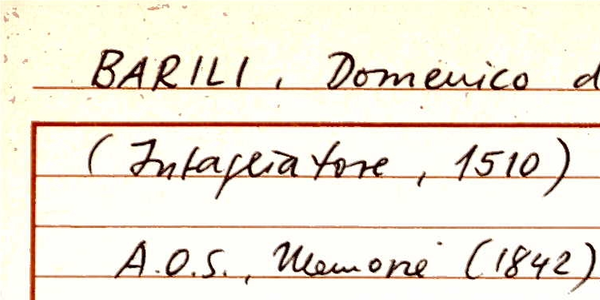 BARILI, Domenico d
(Intagliatore, 1510)
A.O.S., Memorie (1842)